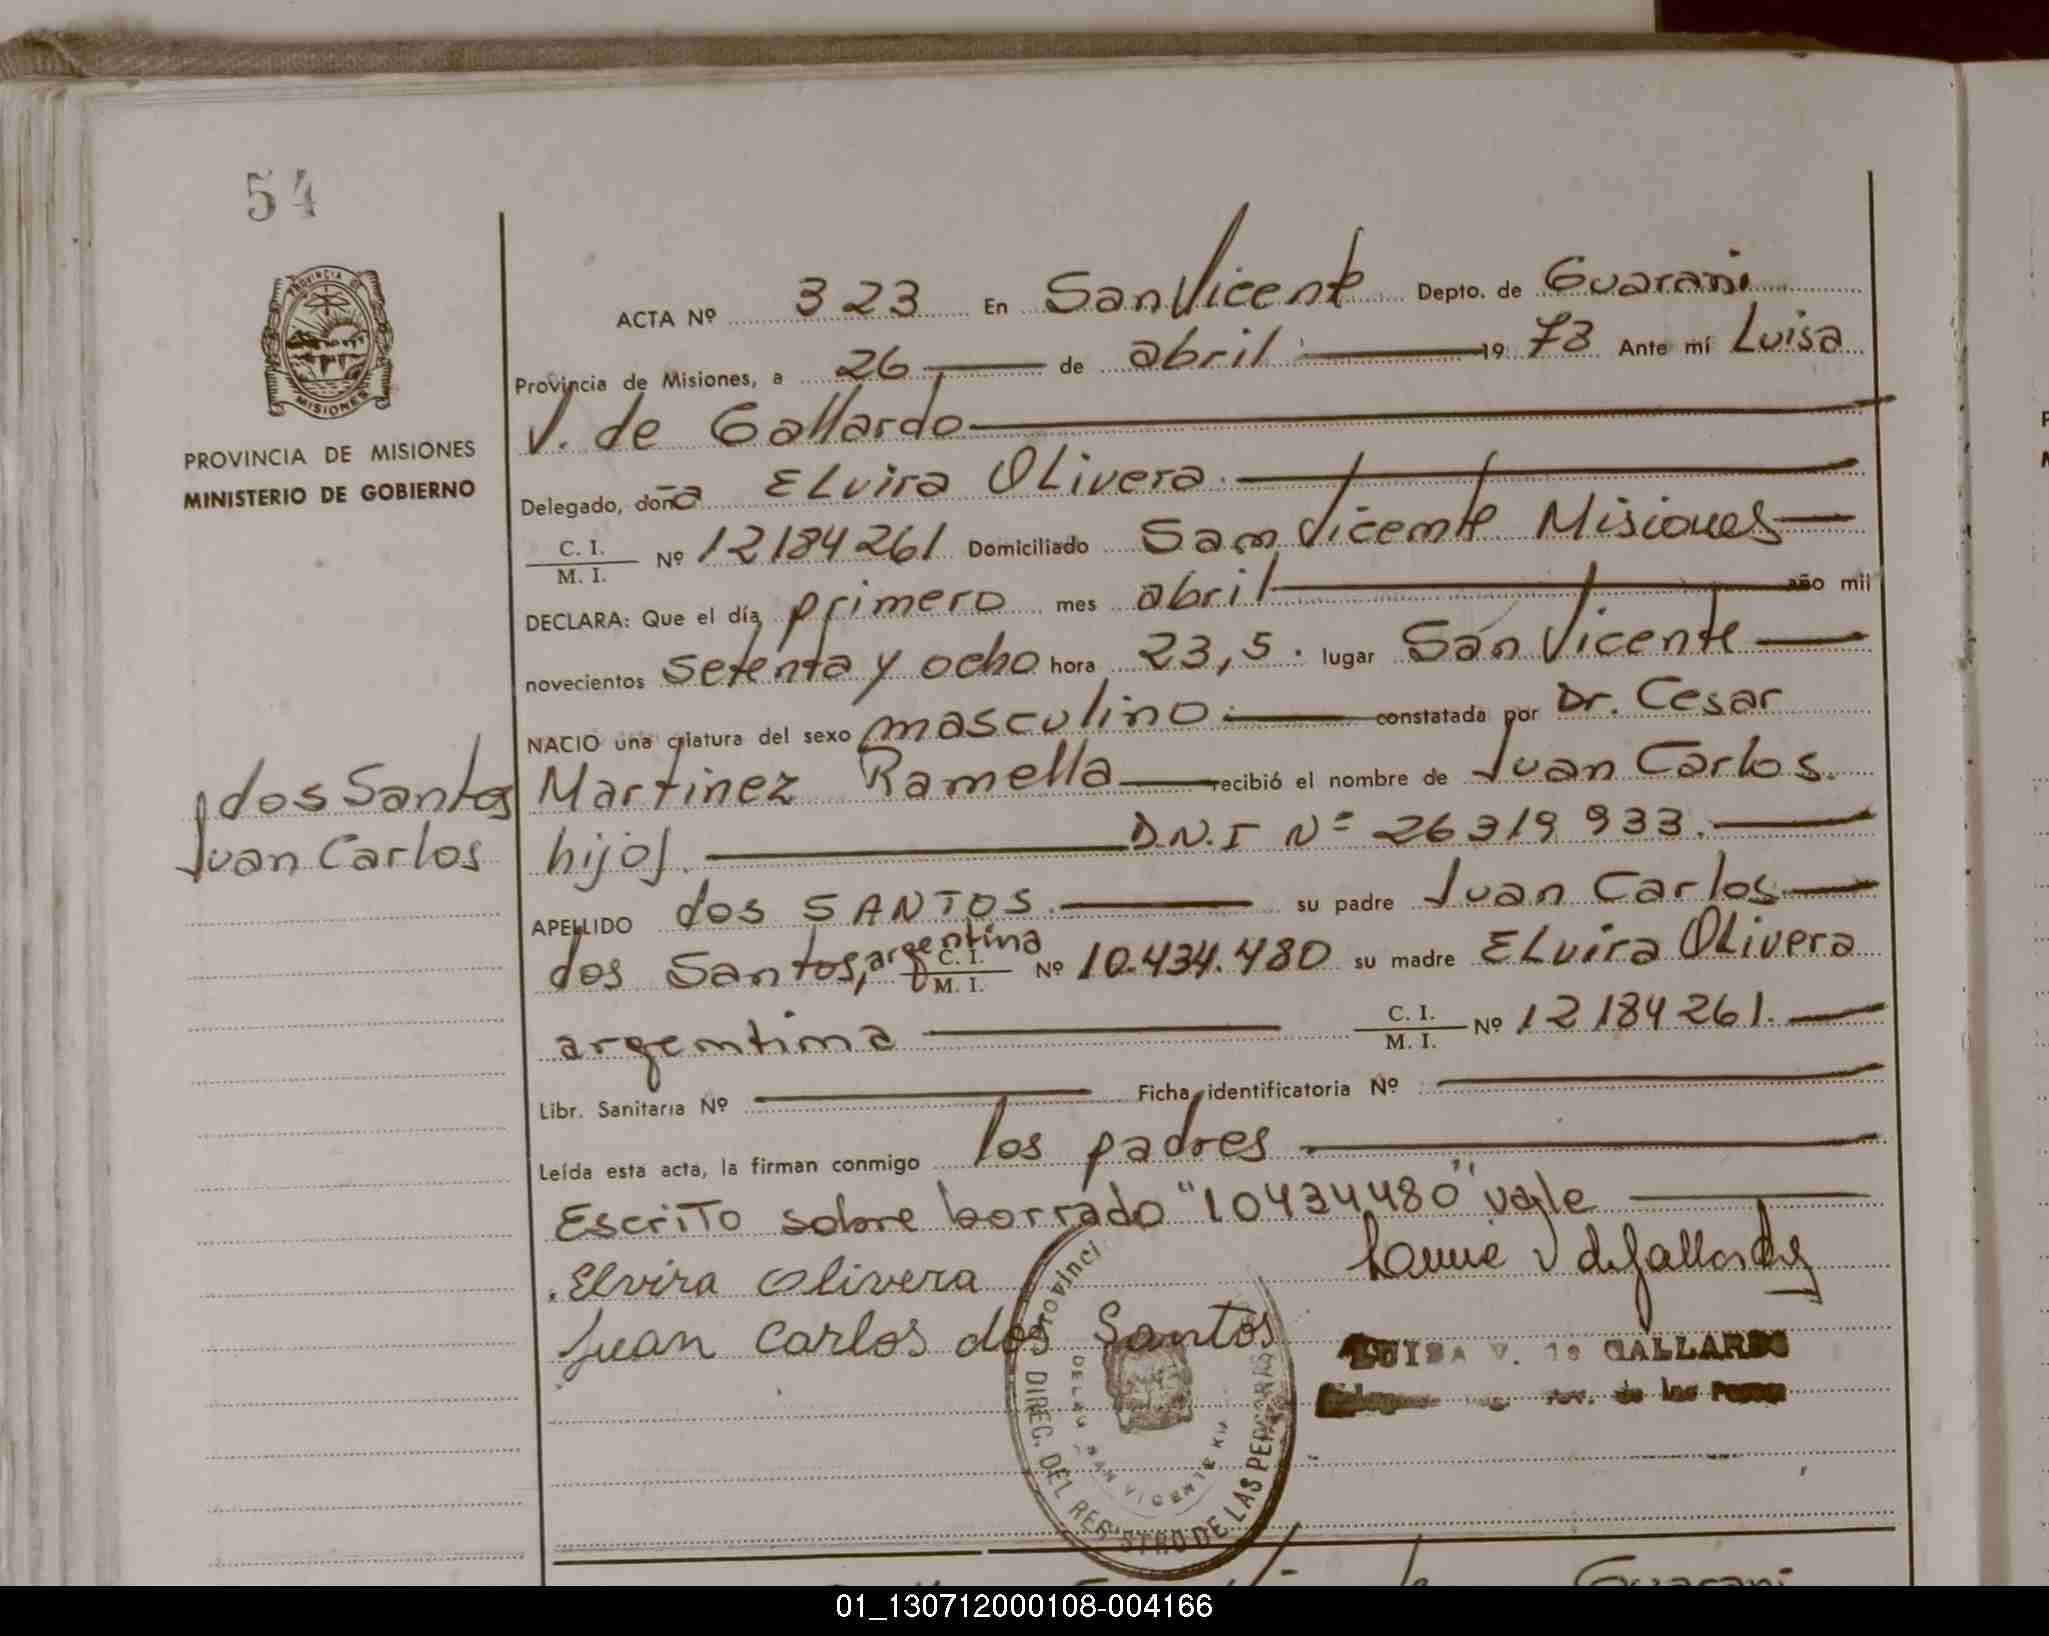 54
PROVINCIA DE
MISIONES
PROVINCIA DE MISIONES
MINISTERIO DE GOBIERNO
dos Santos
Juan Carlos
ACTA Nº 323 En San Vicente Depto. de Guarani
Provincia de Misiones, a 26 de abril 1978 Ante mí Luisa
V. de Gallardo
Delegado, doña Elvira Olivera.
C. I. / M. I. Nº 12184261 Domiciliado San Vicente Misiones
DECLARA: Que el día primero mes abril año mil
novecientos setenta y ocho hora 23,5. lugar San Vicente
NACIO una criatura del sexo masculino. constatada por Dr. Cesar
Martinez Ramella recibió el nombre de Juan Carlos.
hijo/. D.N.I Nº 26319933.
APELLIDO dos SANTOS. su padre Juan Carlos
dos Santos, argentina C. I. / M. I. Nº 10.434.480 su madre Elvira Olivera
argentina C. I. / M. I. Nº 12184261.
Libr. Sanitaria Nº Ficha identificatoria Nº
Leída esta acta, la firman conmigo los padres
Escrito sobre borrado "10434480" vale
Elvira Olivera
Juan Carlos dos Santos
V de Gallardo
LUISA V. de GALLARDO
de las
Provinci
DIREC. DEL REGISTRO DE LAS PERSONAS
SAN VICENTE
Guarani
01_130712000108-004166